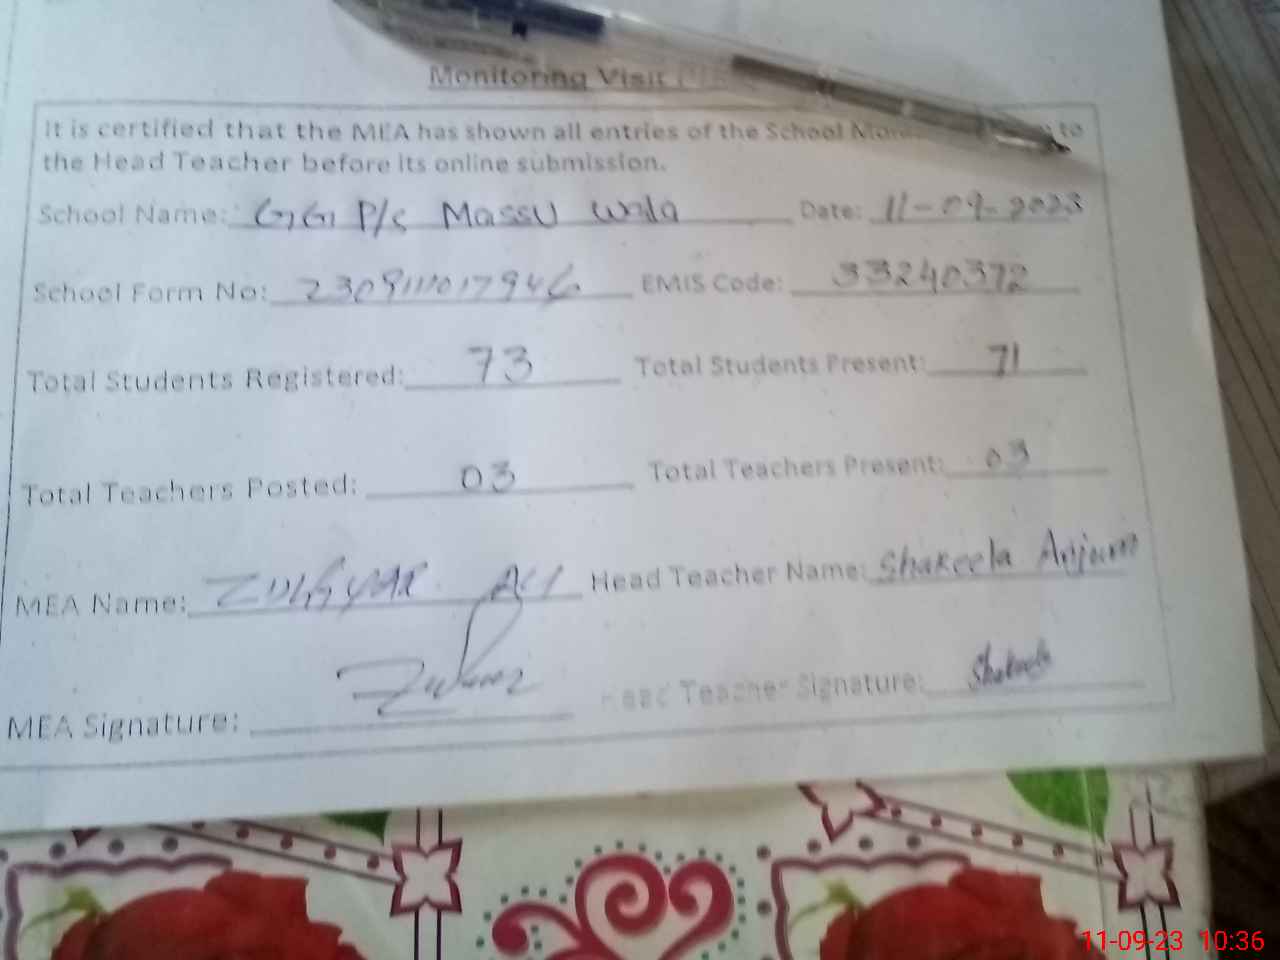 Monitoring Visit
It is certified that the MEA has shown all entries of the School to
the Head Teacher before its online submission.
School Name: GG P/S Massu wala Date: 11-09-2023
School Form No: EMIS Code: 33240372
Total Students Registered: 73 Total Students Present: 71
Total Teachers Posted: 03 Total Teachers Present: 03
MEA Name: Head Teacher Name: Shakeela Anjum
MEA Signature: Head Teacher Signature: Shakeela
11-09-23 10:36